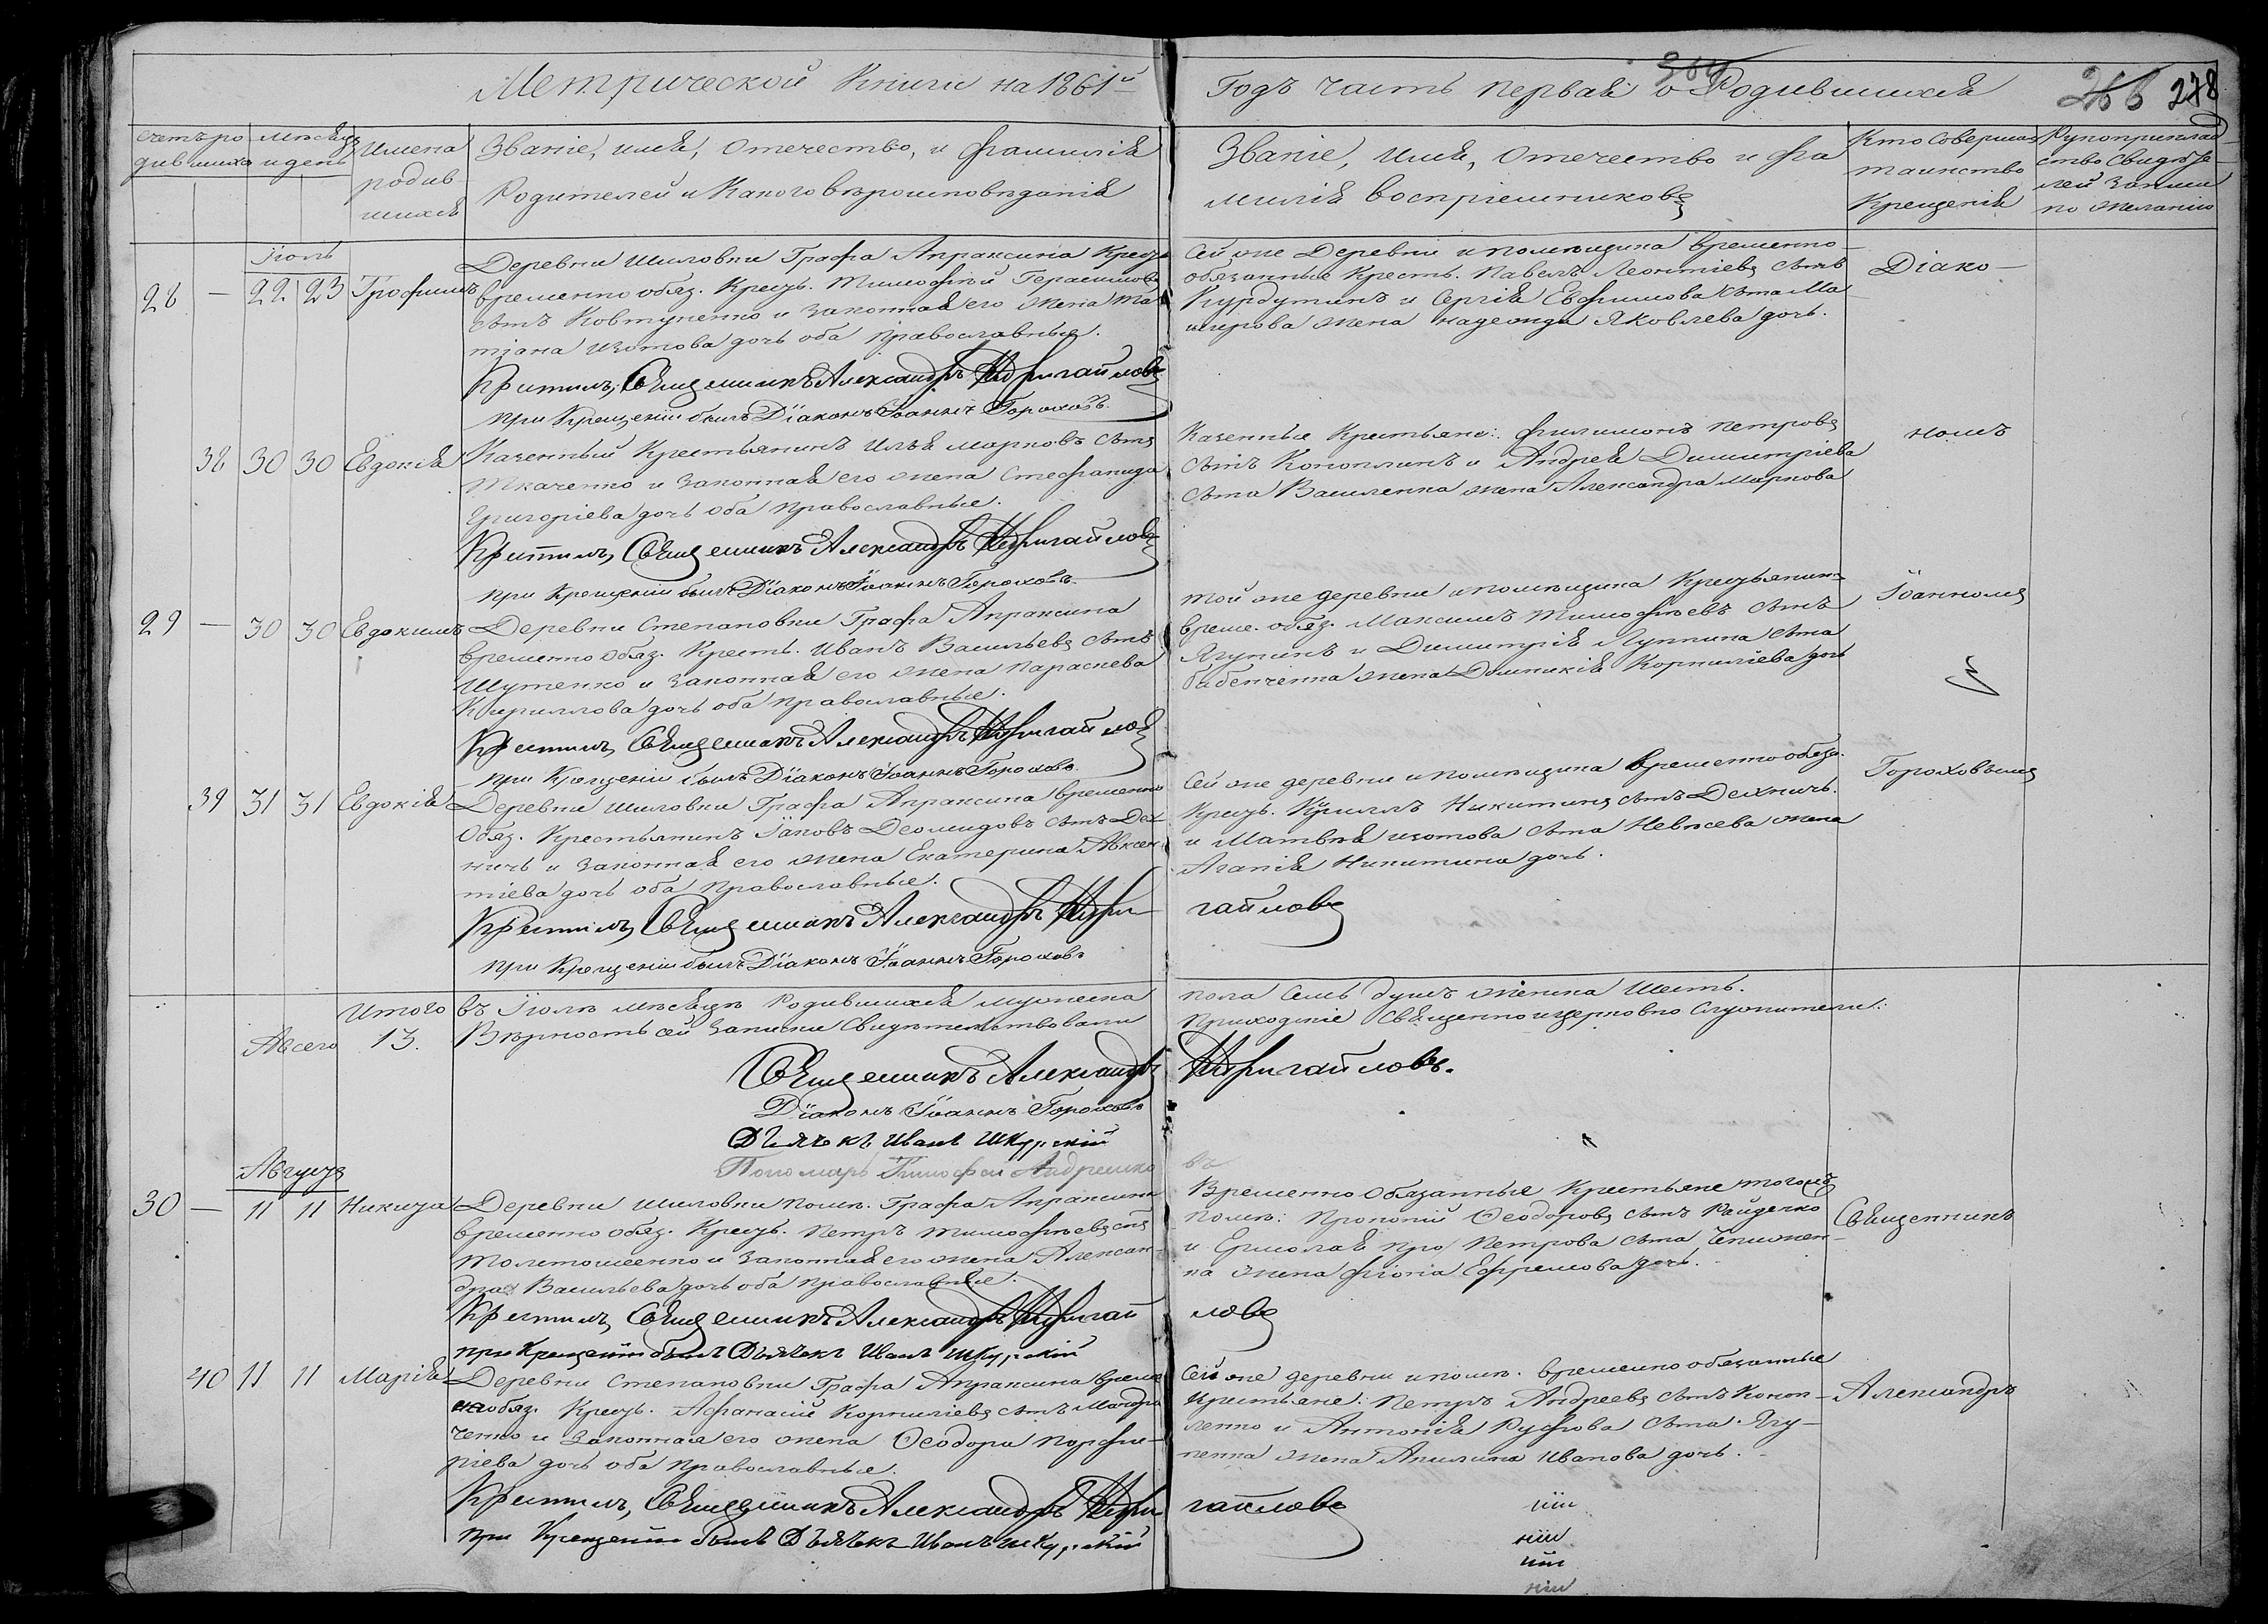 Метрической Книги на 1861й
Годъ часть первая о Родившихся
278
Счетъ родившихся
Мѣсяцъ и день
Имена родившихся
Званіе, имя, Отечество, и фамилія
Родителей и Какого вѣроисповѣданія
Званіе, имя, Отечество и фа
милія воспріемниковъ
Кто Совершалъ
таинство
Крещенія
Рукоприклад
ство Свидѣте
лей Записи
по желанію
Іюль
28 — 22 23 Трофимъ
Деревни Шиловки Графа Апраксина Крест
временно обяз. Крест. Тимофѣй Герасимовъ
сынъ Ковтуненко и Законная его жена Та
тіана Изотова дочь оба Православные.
Крестилъ, Священникъ Александръ
при Крещеніи былъ Діаконъ Іоаннъ Гороховъ.
Сей же Деревни и помѣщика временно
обязанные Крест. Павелъ Леонтіевъ сынъ
Курдутинъ и Сергія Евфимова сына Ма
жена Надежда Яковлева дочь.
Діако
38 30 30 Евдокія
Казенный Крестьянинъ Илья Марковъ сынъ
Ткаченко и Законная его жена Стефанида
Григоріева дочь оба православные.
Крестилъ, Священникъ Александръ
при Крещеніи былъ Діаконъ Іоаннъ Гороховъ.
Казенные Крестьяне: Филимонъ Петровъ
сынъ Коноплинъ и Андрея Димитріева
сына Василенка жена Александра Маркова
номъ
29 — 30 30 Евдокимъ
Деревни Степановки Графа Апраксина
временно обяз. Крест. Иванъ Васильевъ сынъ
Шутенко и Законная его жена Параскева
Кириллова дочь оба православные.
Крестилъ, Священникъ Александръ
при Крещеніи былъ Діаконъ Іоаннъ Гороховъ.
той же деревни и помѣщика Крестьянинъ
време. обяз. Максимъ Тимофѣевъ сынъ
Ягупинъ и Димитрія Луппина сына
Бабенченка жена Домникія Корниліева дочь
Іоанномъ
39 31 31 Евдокія
Деревни Шиловки Графа Апраксина временно
обяз. Крестьянинъ Іаковъ Деомидовъ сынъ Дех
ничъ и Законная его жена Екатерина Авксен
тіева дочь оба Православные.
Крестилъ, Священникъ Александръ
при Крещеніи былъ Діаконъ Іоаннъ Гороховъ
Сей же деревни и помѣщика временнообяз.
Крест. Кириллъ Никитинъ сынъ Дехничъ.
и Матвѣя Изотова сына Невжева жена
Агапія Никитина дочь.
Гороховымъ
Итого въ Іюлѣ мѣсяцѣ Родившихся мужеска
пола Семь душъ женска Шесть.
А всего 13.
Вѣрность сей Записи Свидѣтельствовали
приходскіе Священно и церковно Служители:
Священникъ Александръ
Діаконъ Іоаннъ Гороховъ
Дьячекъ Иванъ Шкурскій
Пономарь Тимофей Андреенко
въ
Августъ
30 — 11 11 Никита
Деревни Шиловки помѣ. Графа Апраксина
временно обяз. Крест. Петръ Тимофѣевъ сынъ
Законная его жена Алексан
дра Васильева дочь оба православные.
Крестилъ, Священникъ Александръ
при Крещеніи былъ Дьячекъ Иванъ Шкурскій
Временно Обязанные Крестьяне тогожъ
помѣ: Прокопій Ѳеодоровъ сынъ Райденко
и Ермолая Петрова сына
на жена Фіонія Ефремова дочь.
Священникъ
40 11 11 Марія
Деревни Степановки Графа Апраксина време
нообяз. Крест. Афанасій Корниліевъ сынъ Мандри
ченко и Законная его жена Ѳеодора Порфи
ріева дочь оба православные.
Крестилъ, Священникъ Александръ
при Крещеніи былъ Дьячекъ Иванъ Шкурскій
Сей же деревни и помѣ. временно обязанные
крестьяне: Петръ Андреевъ сынъ Коноп
ленко и Антонія Руфова сына Ягу
пенка жена Акилина Иванова дочь.
Александръ